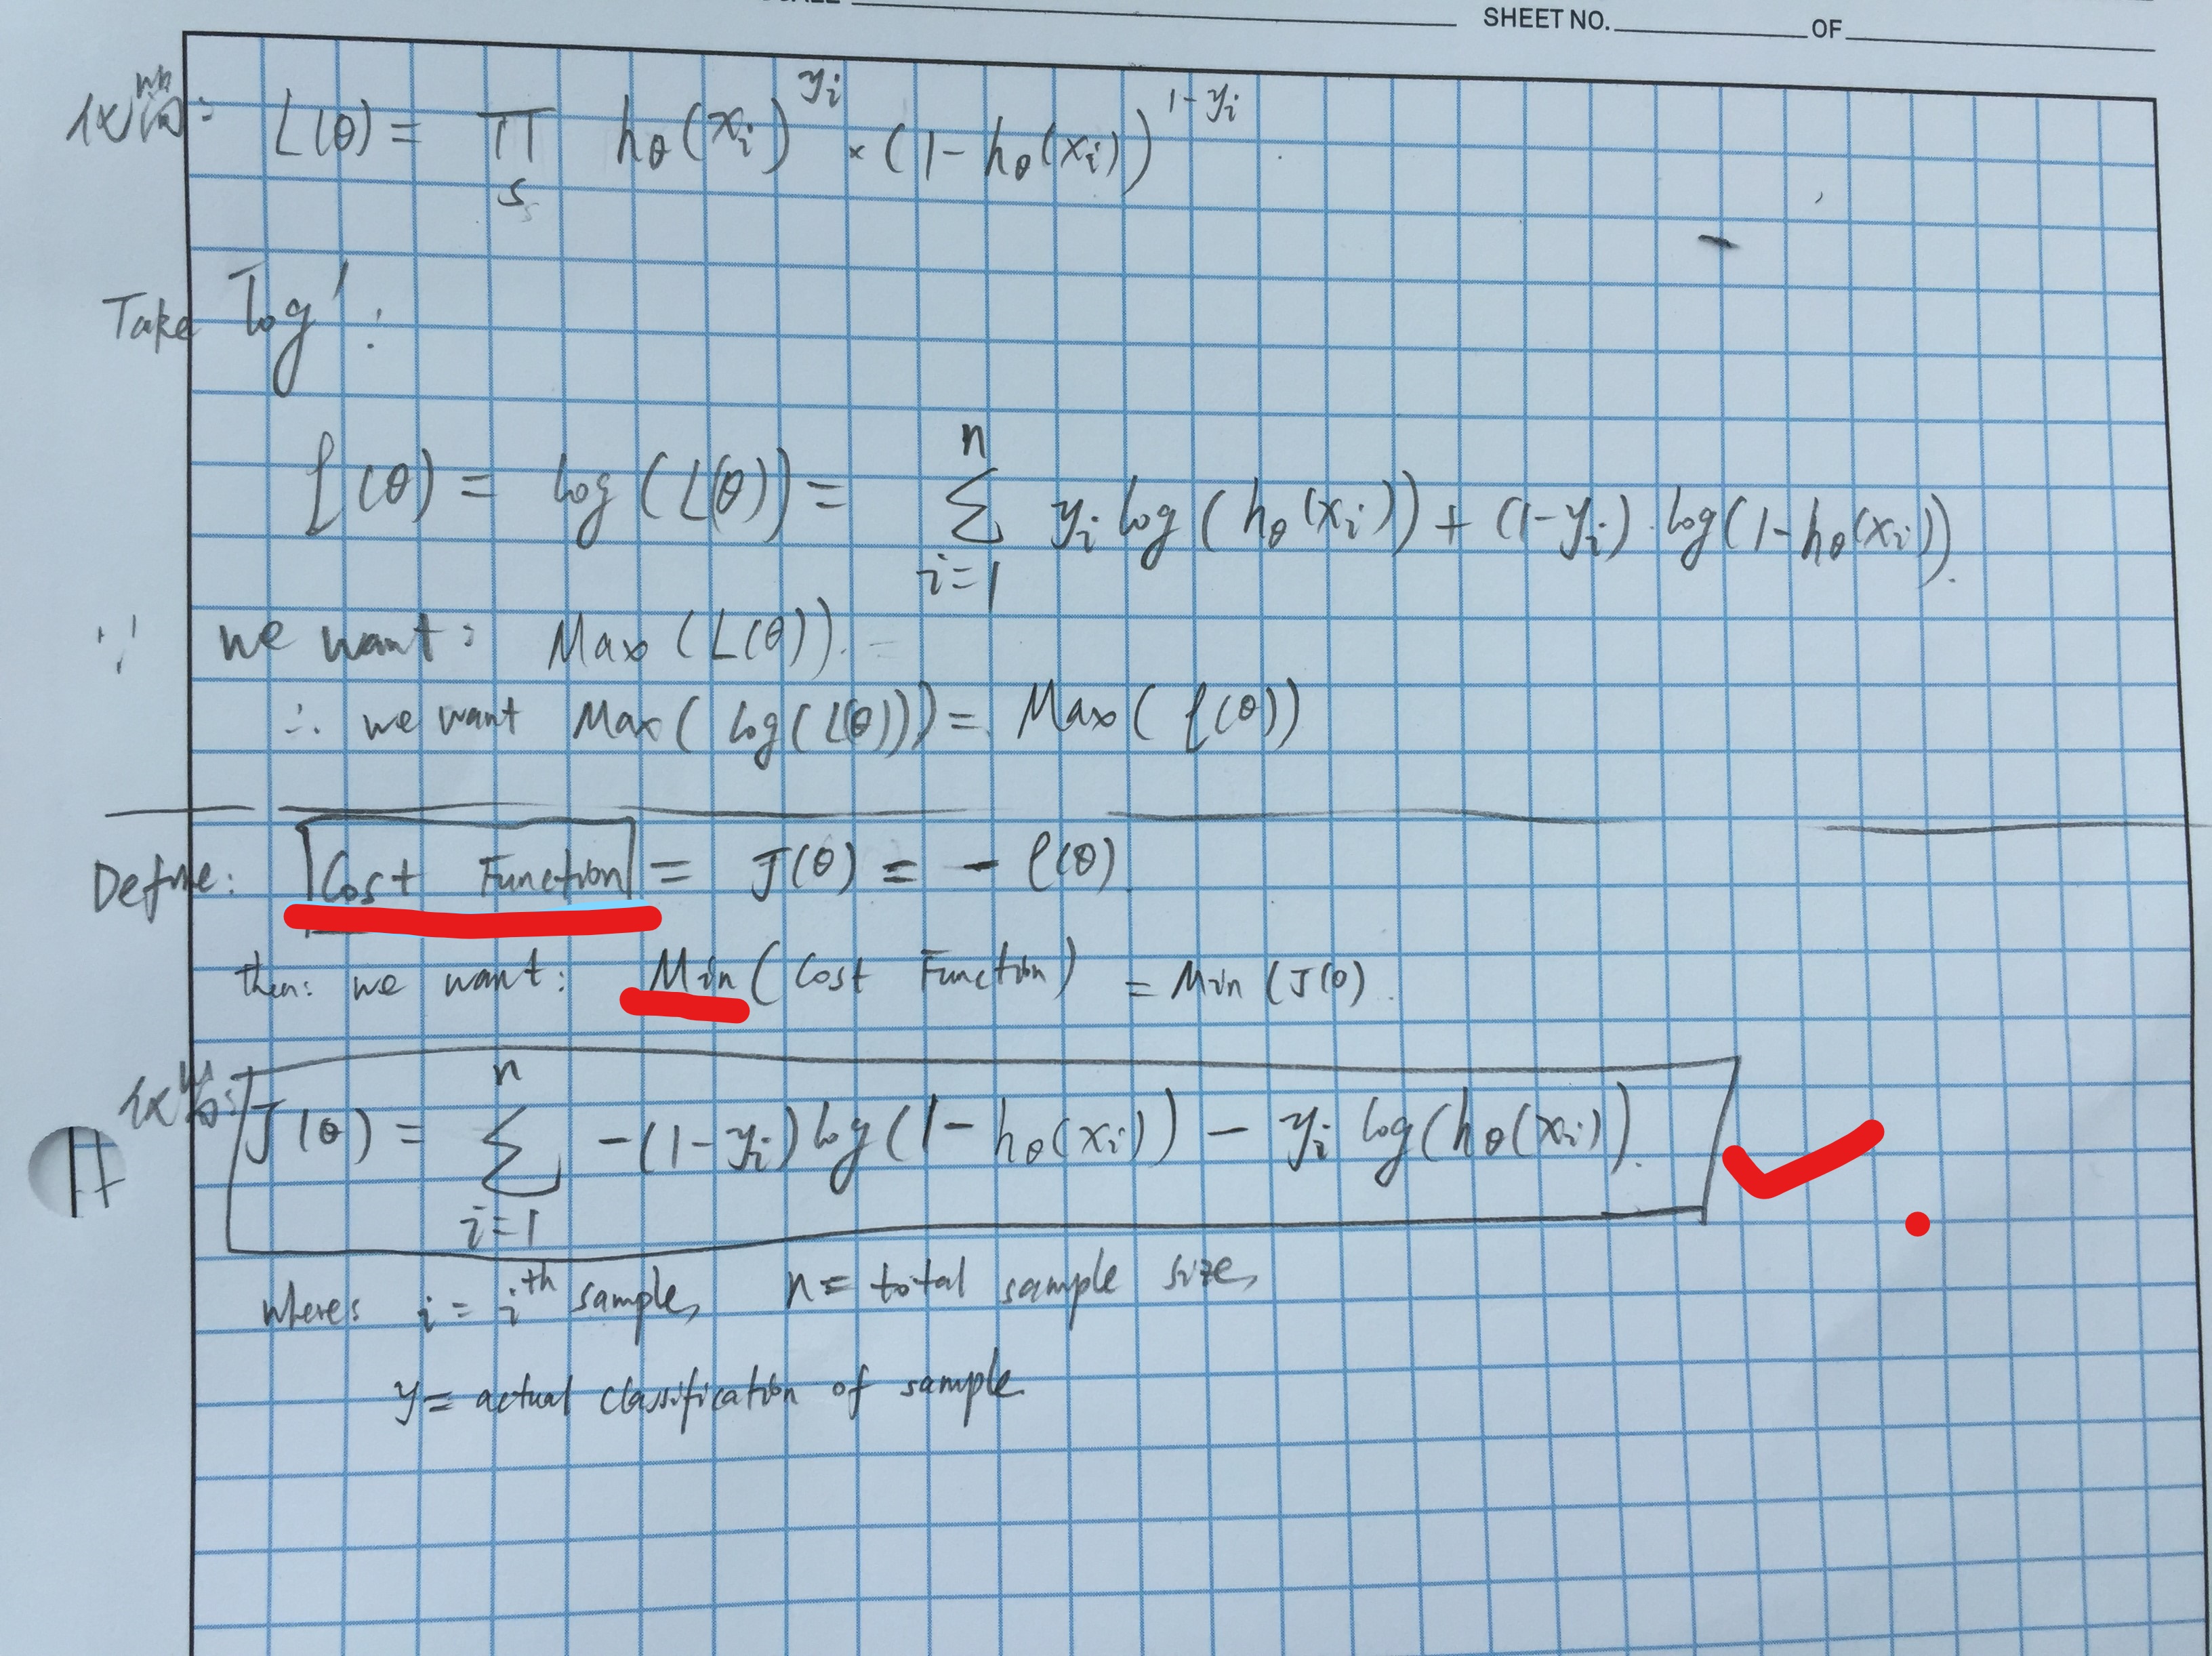 SHEET NO. OF
L(θ) = ∏ₛ hθ(xᵢ)^yᵢ × (1 - hθ(xᵢ))^1-yᵢ
Take log:
ℓ(θ) = log(L(θ)) = ∑ᵢ₌₁ⁿ yᵢ log(hθ(xᵢ)) + (1-yᵢ)·log(1-hθ(xᵢ)).
∵ we want: Max(L(θ)).
∴ we want Max(log(L(θ))) = Max(ℓ(θ))
Define: Cost Function = J(θ) = - ℓ(θ)
then: we want: Min(Cost Function) = Min(J(θ).
J(θ) = ∑ᵢ₌₁ⁿ -(1-yᵢ)log(1-hθ(xᵢ)) - yᵢ log(hθ(xᵢ)).
where: i = i^th sample, n = total sample size,
y = actual classification of sample